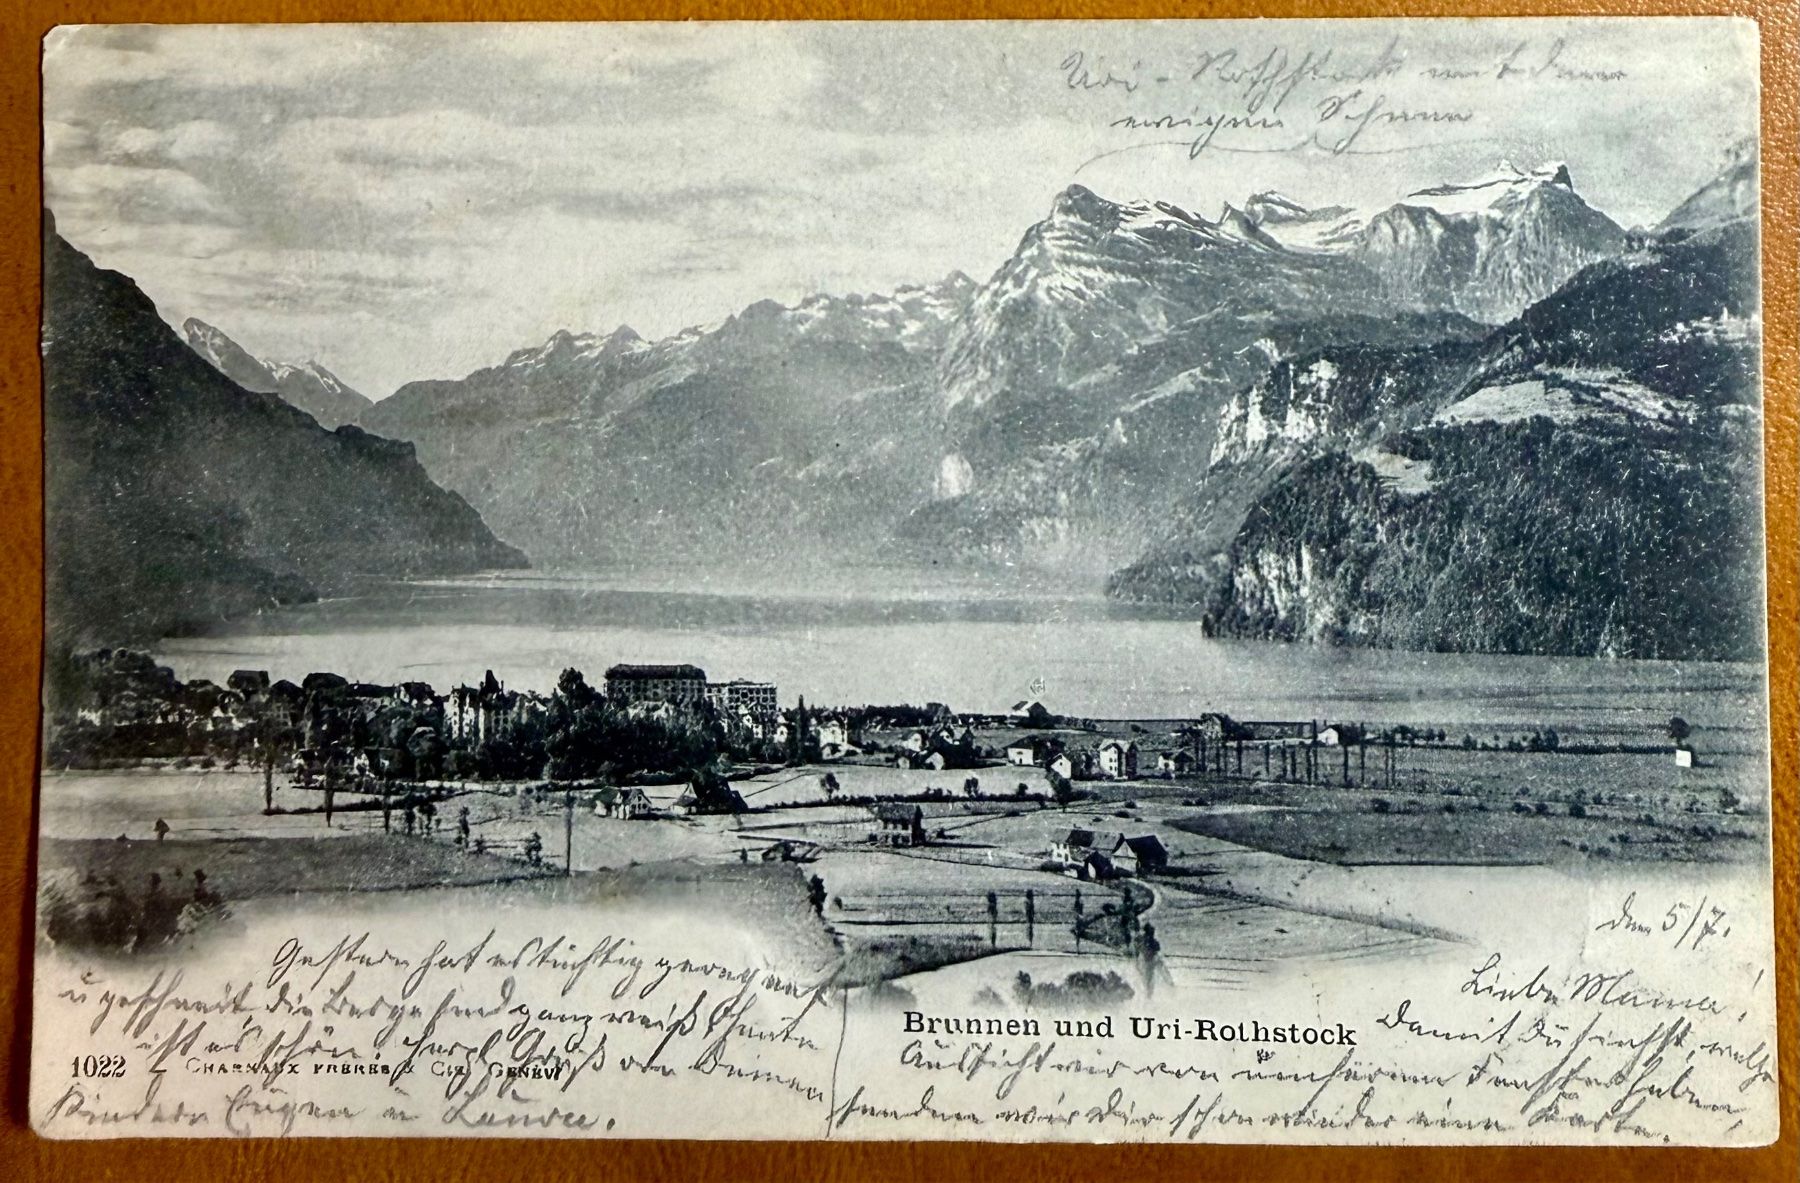 Uri-Rothstock mit dem
ewigen Schnee
den 5/7.
Liebe Mama!
Brunnen und Uri-Rothstock
Damit Du siehst, welche
Aussicht wir von unserem Fenster haben,
senden wir Dir schon wieder eine Karte.
Gestern hat es tüchtig geregnet
u geschneit, die Berge sind ganz weiß, heute
ist es schön. herzl Gruß von Deinen
1022 CHARNAUX FRÈRES & Cie, GENÈVE
Kindern Eugen u Laura.